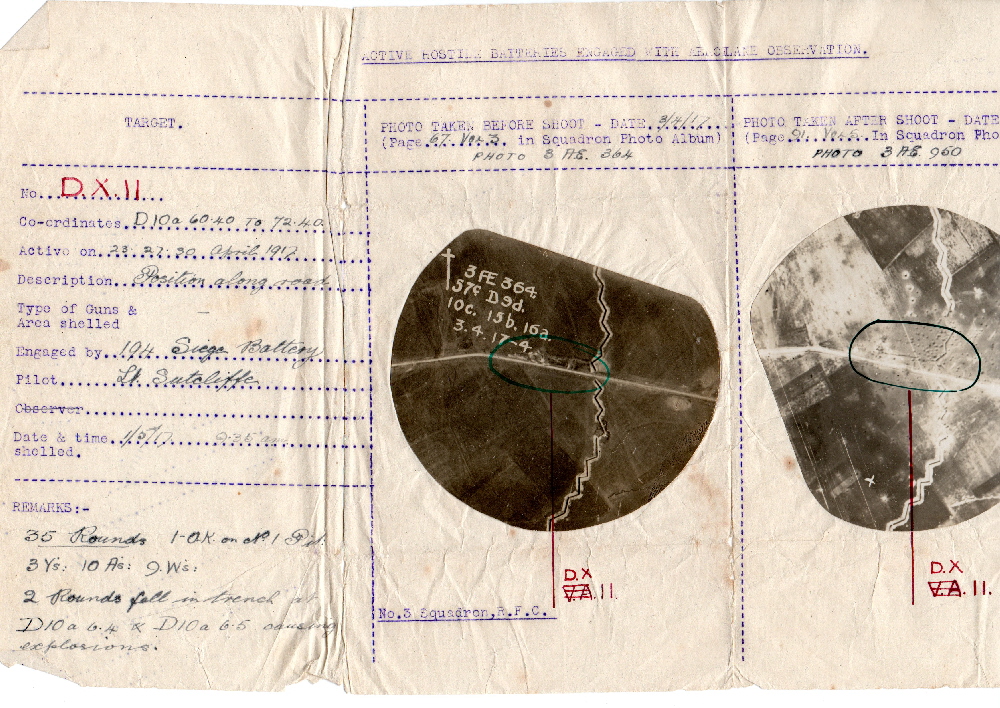 ACTIVE HOSTILE BATTERIES ENGAGED WITH AEROPLANE OBSERVATION.
TARGET.
No. D.X.11
Co-ordinates. D10a 60.40 To 72.40
Active on. 23. 27. 30 April 1917
Description. Position along road
Type of Guns & —
Area shelled
Engaged by. 194 Siege Battery
Pilot. Lt. Sutcliffe.
Observer
Date & time. 1/5/17 9.35 am
shelled.
REMARKS:-
35 Rounds 1-OK on No 1 Pit.
3 Ys: 10 As: 9 Ws:
2 Rounds fell in trench at
D10a 6.4 & D10a 6.5 causing
explosions.
PHOTO TAKEN BEFORE SHOOT - DATE 3/4/17
(Page 67. Vol. 3. in Squadron Photo Album)
PHOTO 3 AE. 364
3 AE 364
57c D9d.
10c. 15b. 16a.
3.4.17-4.
D.X
V.A. 11.
No.3 Squadron, R.F.C.
PHOTO TAKEN AFTER SHOOT - DATE
(Page 91. Vol. 5. In Squadron Pho
PHOTO 3 AE. 960
D.X
V.A. 11.